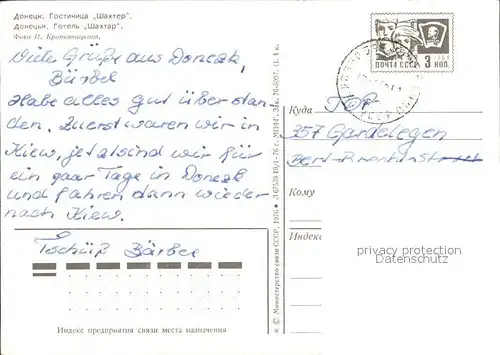 Донецк. Гостиница „Шахтер".
Донецьк. Готель „Шахтар".
Фото И. Кропивницкого.
Viele Grüße aus Donezk,
Bärbel
Habe alles gut überstan-
den. Zuerst waren wir in
Kiew, jetzt sind wir für
ein paar Tage in Donezk
und fahren dann wieder
nach Kiew.
Tschüß Bärbel
Индекс предприятия связи места назначения
© Министерство связи СССР, 1976
ПОЧТА СССР
3 КОП.
Куда
357 Gardelegen
Кому
Индекс
privacy protection
Datenschutz